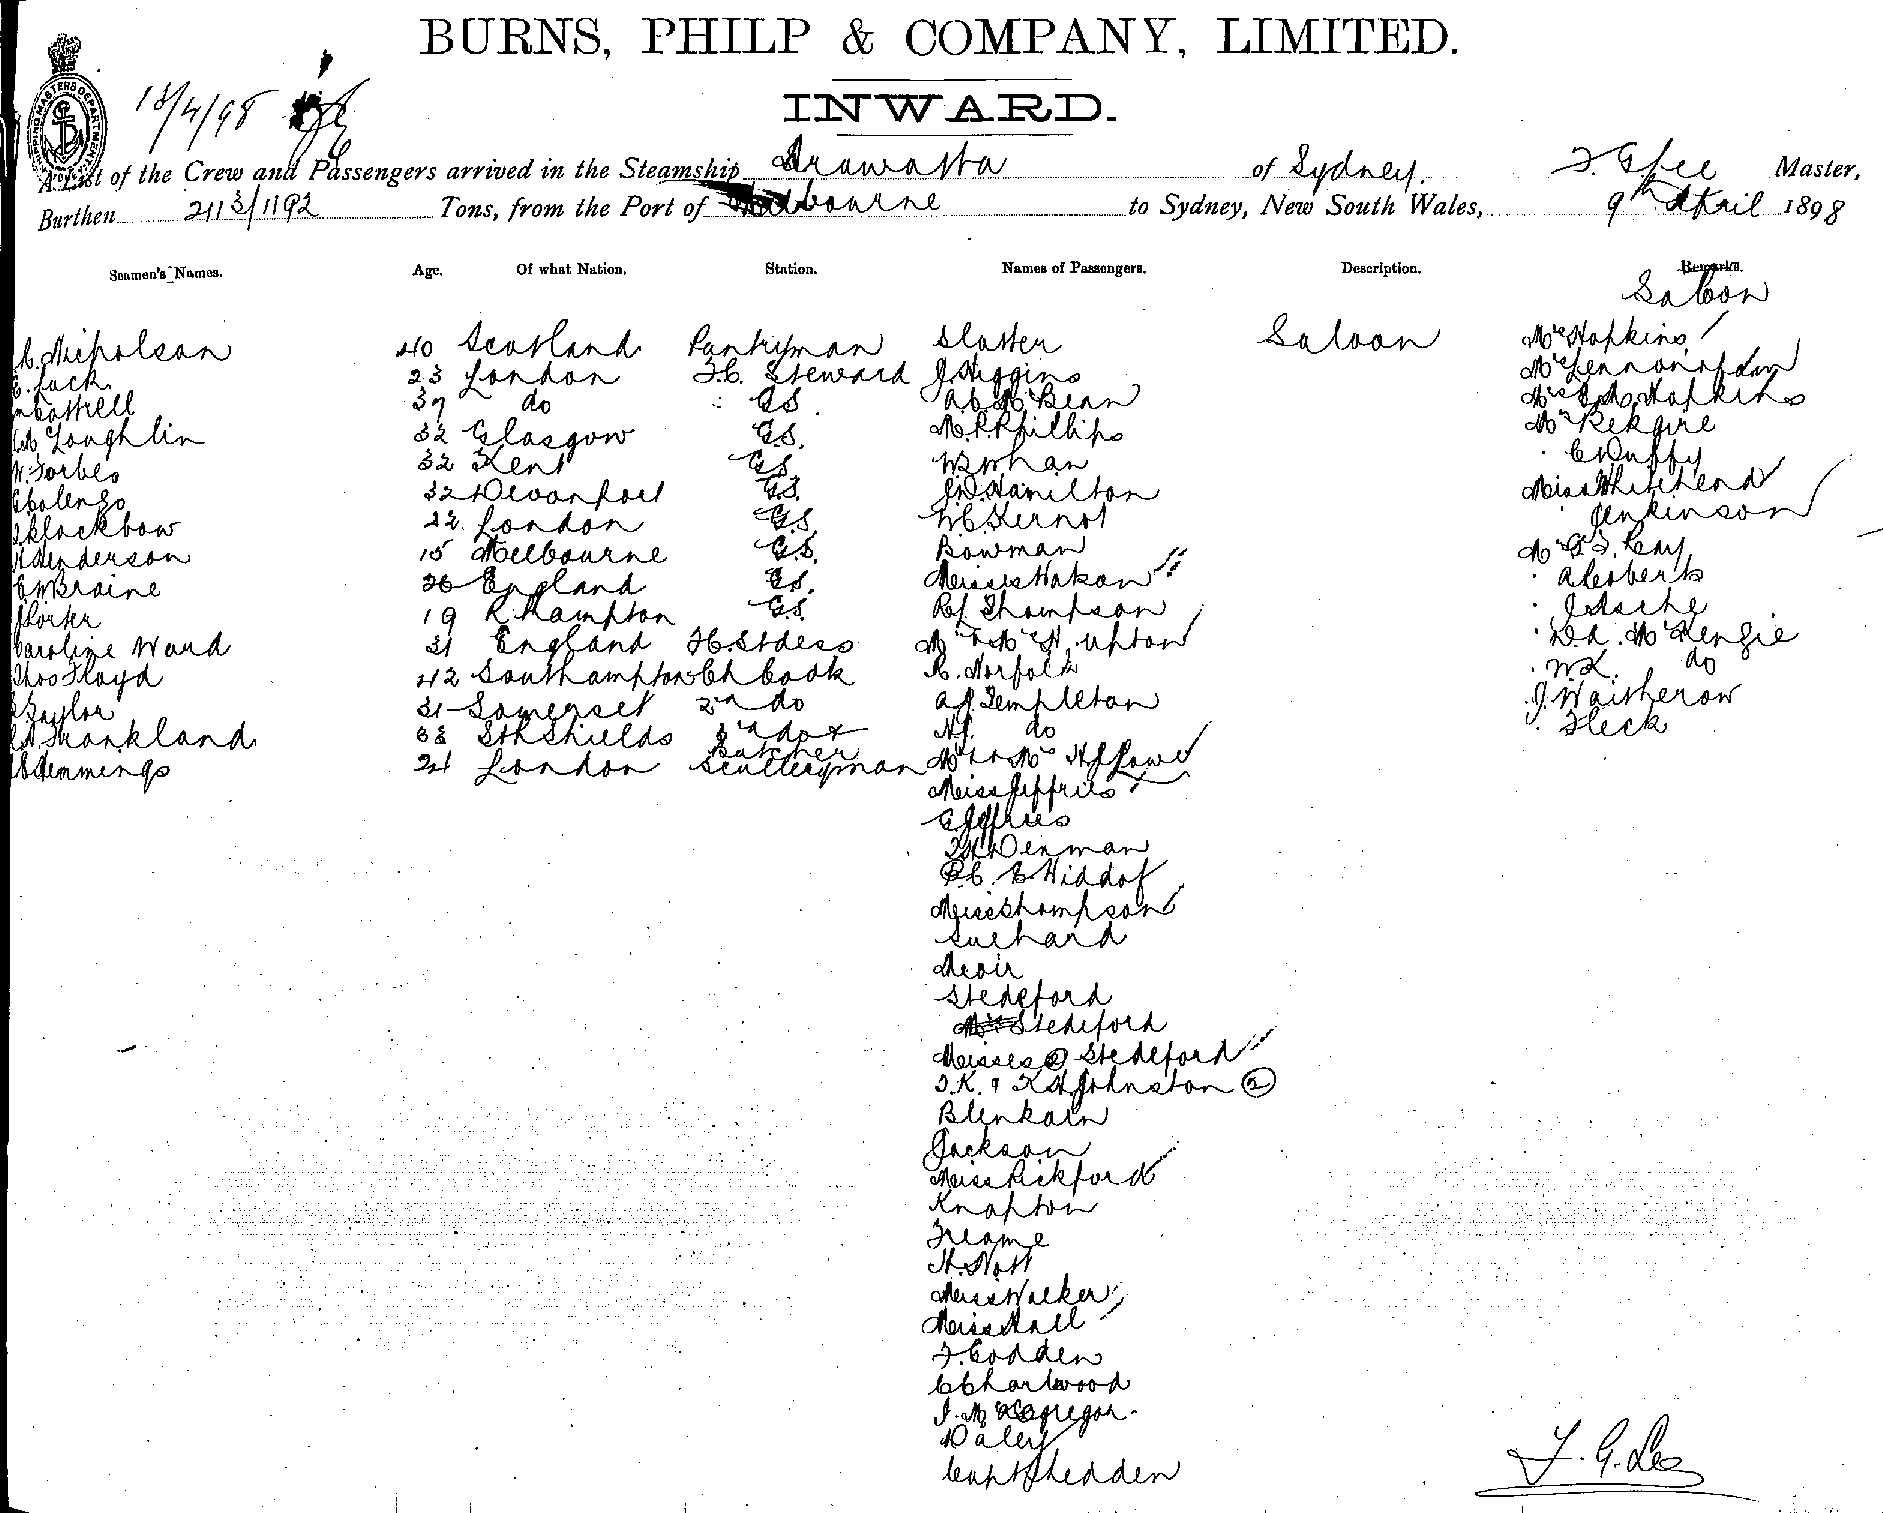 BURNS, PHILP & COMPANY, LIMITED.
INWARD.
SHIPPING MASTERS DEPARTMENT
13/4/98
A List of the Crew and Passengers arrived in the Steamship Arawatta of Sydney. F. G. Lee Master,
Burthen 2113/1192 Tons, from the Port of Melbourne to Sydney, New South Wales, 9th April 1898
Seamen's Names. Age. Of what Nation. Station. Names of Passengers. Description. Remarks.
Saloon
Nicholson 40 Scotland Pantryman Slatter Saloon Mrs Hopkins
Jack 23 London F.C. Steward J. Higgins Mr Lennon
Cottrell 37 do G.S. McBean Hopkins
McLoughlin 32 Glasgow G.S. M. P. Phillips Mr Rekgire
W. Forbes 32 Kent G.S. Whan C Duffy
Colenso 32 Devonport G.S. J. W. Hamilton Miss Whitehead
Blackbow 22 London G.S. W C Kernot Jenkinson
Henderson 15 Melbourne G.S. Bowman Mr G. F. Cay
C. W. Braine 26 England G.S. Misses Hakon A Roberts
J Porter 19 R. Hampton G.S. Thompson J Asche
Caroline Ward 31 England F.C. Stdess Mr & Mrs H. Upton D. A. McKenzie
Thos Floyd 42 Southampton Ch Cook R. Norfolk W. L. do
Taylor 31 Somerset 2nd do A J. Templeton J. Waisherow
Frankland 33 Sth Shields 3rd do & Butcher H J. do Fleck
Hemmings 24 London Sculleryman Mr & Mrs H J Lowe
Miss Jeffries
C Jeffries
Denman
C. E Widdop
Miss Thompson
Suchard
Meoir
Stedeford
Stedeford
Misses 2 Stedeford
J. K. & K H Johnston 2
Blenkain
Jackson
Miss Pickford
Knapton
Freame
H. Nott
Miss Walker
Miss Hall
F. Codden
C Charlwood
J. McGregor
Daley
Capt Shedden
F. G. Lee